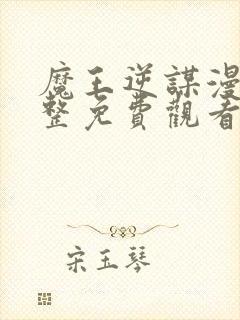 魔王逆謀漫
整免費觀看
宋玉琴